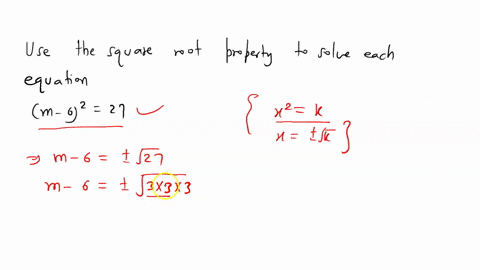 Use the square root property to solve each
equation
(m-6)² = 27
{ x² = k
x = ±√k }
⇒ m-6 = ±√27
m-6 = ±√3×3×3